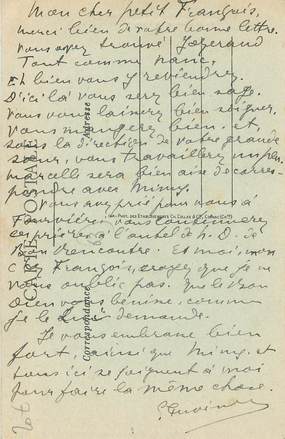 Mon cher petit François,
merci bien de votre bonne lettre.
Vous avez trouvé
Tout comme
Eh bien vous y reviendrez.
D'ici là vous serez bien sage.
Vous vous laisserez bien soigner,
vous mangerez bien. et,
sous la direction de votre grande
sœur, vous travaillerez un peu.
Marcelle sera bien aise de corres-
pondre avec Mimy.
Vous avez prié pour nous à
Fourvière, vous continuerez
ces prières à l'autel de N. D. de
Bon Rencontre. Et moi, mon
cher François, croyez que je ne
vous oublie pas. Que le bon
Dieu vous bénisse, comme
je le lui demande.
Je vous embrasse bien
fort ainsi que Mimy, et
tous ici se joignent à moi
pour faire la même chose.
CARTE POSTALE
Correspondance
Adresse